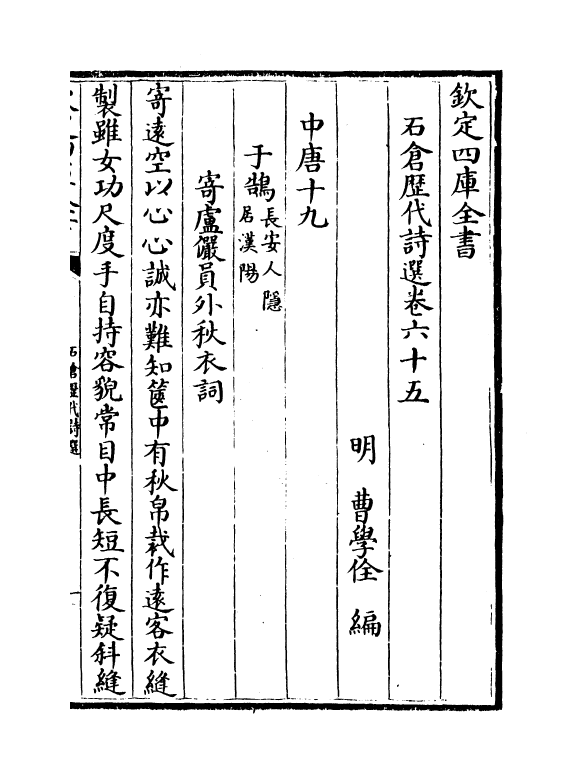 欽定四庫全書
石倉歴代詩選卷六十五
明 曹學佺 編
中唐十九
于鵠長安人隱居漢陽
寄盧儼員外秋衣詞
寄逺空以心心誠亦難知篋中有秋帛裁作逺客衣縫
製雖女功尺度手自持容貌常目中長短不復疑斜縫
石倉歴代詩選
一